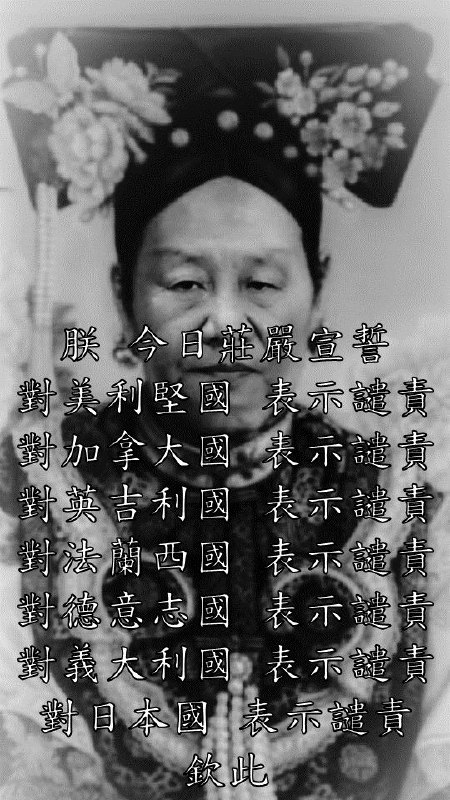 朕 今日莊嚴宣誓
對美利堅國 表示譴責
對加拿大國 表示譴責
對英吉利國 表示譴責
對法蘭西國 表示譴責
對德意志國 表示譴責
對義大利國 表示譴責
對日本國 表示譴責
欽此